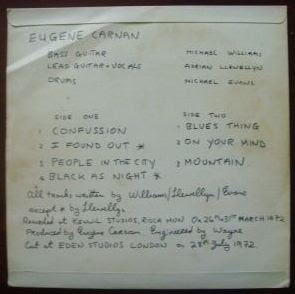 EUGENE CARNAN
BASS GUITAR MICHAEL WILLIAMS
LEAD GUITAR + VOCALS ADRIAN LLEWELLYN
DRUMS MICHAEL EVANS
SIDE ONE SIDE TWO
1 CONFUSSION 1 BLUES THING
2 I FOUND OUT * 2 ON YOUR MIND
3 PEOPLE IN THE CITY 3 MOUNTAIN
4 BLACK AS NIGHT *
All tracks written by Williams/Llewellyn/Evans
except * by Llewellyn
Recorded at STUDIOS, On 26th 31st MARCH 1972
Produced by Eugene Carnan. Engineered by Wayne
Cut at EDEN STUDIOS LONDON on 28th July 1972.